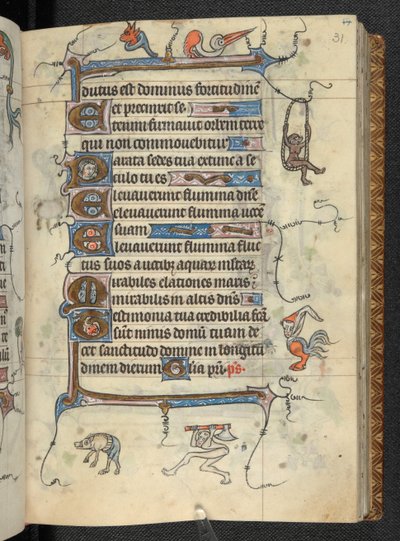 31
dutus est dominus fortitudinē
et precinxit se
tenim firmauit orbem terre
qui non commouebitur
arata sedes tua ex tunc a se
culo tu es
leuauerunt flumina dñe
eleuauerunt flumina uocē
suam
leuauerunt flumina fluc
tus suos a uocibȝ aquar̄ multar̄
irabiles elationes maris
mirabilis in altis dñs
estimonia tua credibilia fc̄a
sūt nimis domū tuam de
cet sanctitudo domine in longitu
dinem dierum lia pr̄i ps